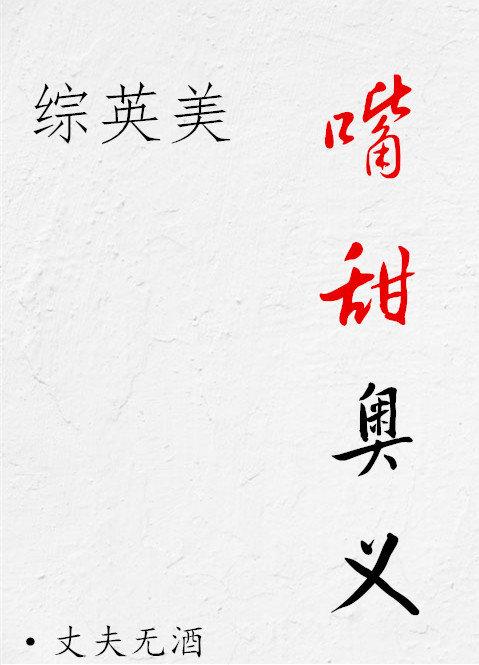 综英美
嘴甜奥义
• 丈夫无酒